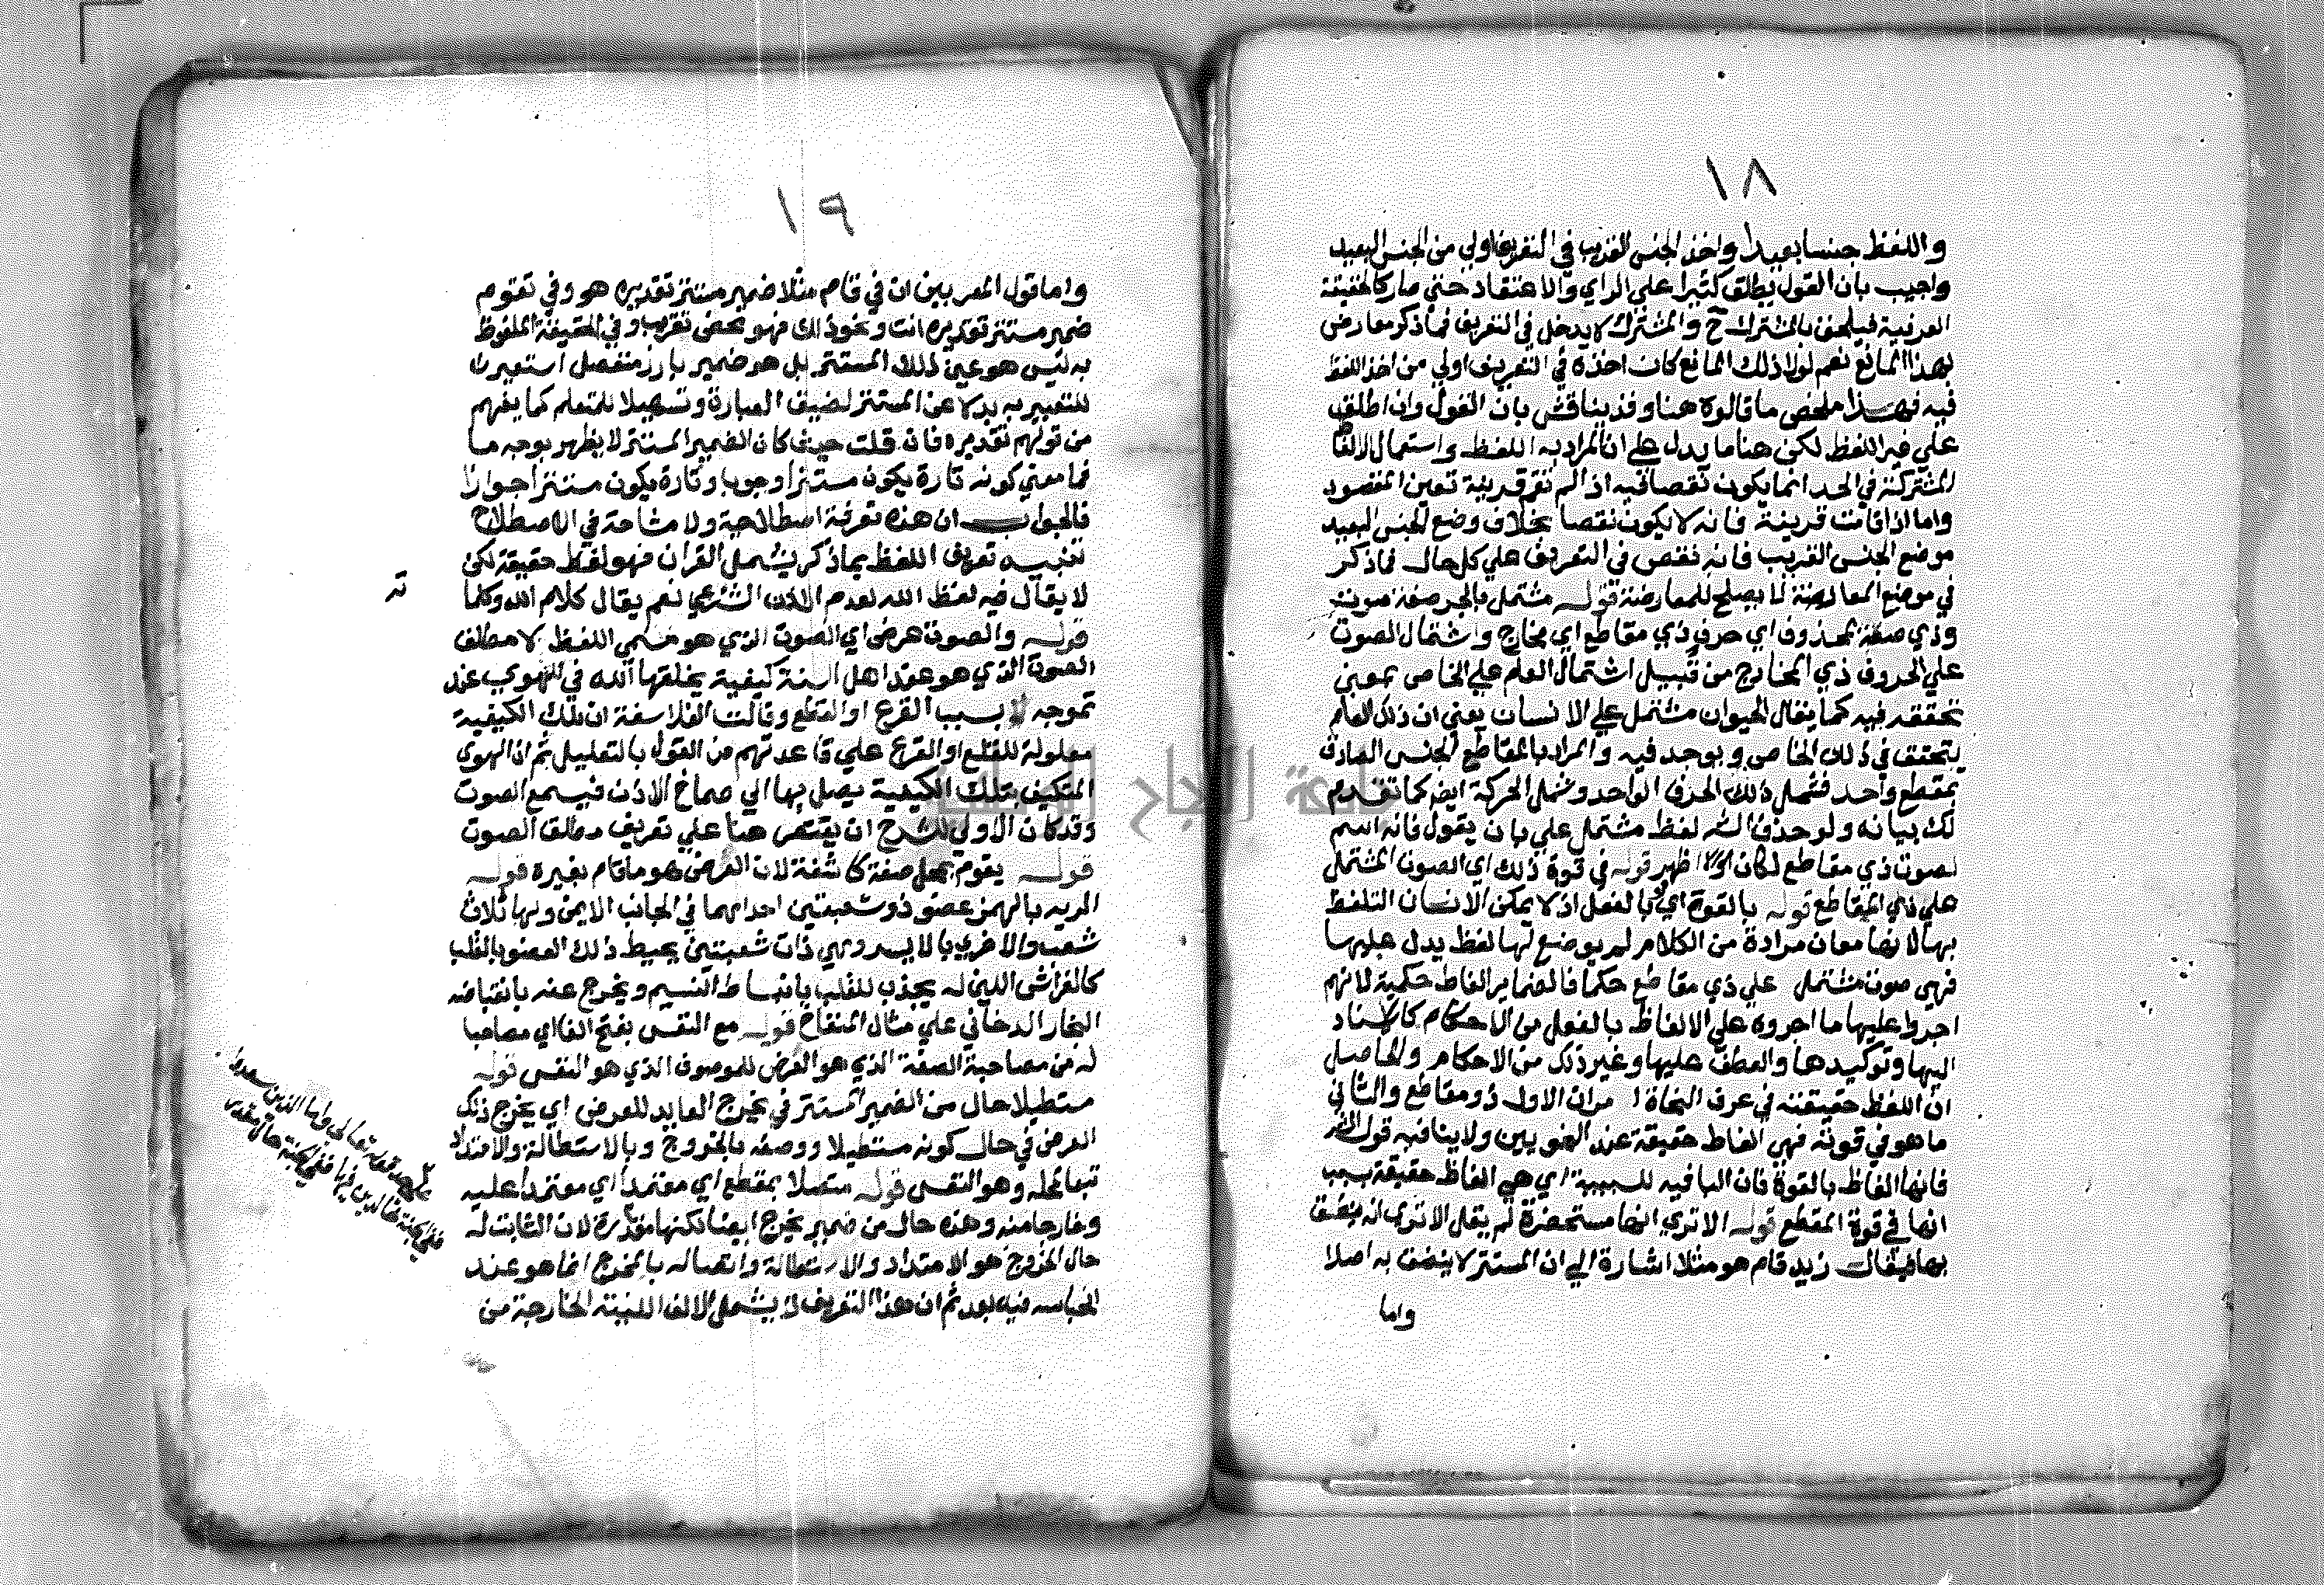 ١٨
واللفظ جنسا بعيدا واخذ الجنس القريب في التعريف اولي من الجنس البعيد
واجيب بان القول يطلق كثيرا علي الراي والاعتقاد حتي صار كالحقيقة
العرفية فيلحق بالمشترك ح والمشترك لا يدخل في التعريف فما ذكر معارض
بهذا المانع نعم لولا ذلك المانع كان اخذه في التعريف اولي من اخذ اللفظ
فيه فهذا ملخص ما قالوه هنا وقد يناقش بان القول وان اطلق
علي غير اللفظ لكن هنا ما يدل علي ان المراد به اللفظ واستعمال الالفاظ
المشتركة في الحد انما يكون نقصا فيه اذا لم تقم قرينة تعين المقصود
واما اذا قامت قرينة فانه لا يكون نقصا بخلاف وضع الجنس البعيد
موضع الجنس القريب فانه نقص في التعريف علي كل حال فما ذكر
في موضع المعارضة لا يصلح للمعارضة قوله مشتمل بالجر صفة صوت
وذي صفة لمحذوف اي حرف ذي مقاطع اي مخارج واشتمال الصوت
علي الحروف ذي المخارج من قبيل اشتمال العام علي الخاص بمعني
تحققه فيه كما يقال الحيوان مشتمل علي الانسان يعني ان ذلك العام
يتحقق في ذلك الخاص ويوجد فيه والمراد بالمقاطع الجنس الصادق
بمقطع واحد فشمل ذلك الحرف الواحد وشمل الحركة ايضا كما تقدم
لك بيانه ولو حذف الش لفظ مشتمل علي بان يقول فانه اسم
لصوت ذي مقاطع لكان اظهر قوله في قوة ذلك اي الصوت المشتمل
علي ذي المقاطع قوله بالقوة اي لا بالفعل اذ لا يمكن الانسان التلفظ
بها لانها معان مرادة من الكلام لم يوضع لها لفظ يدل عليها
فهي صوت مشتمل علي ذي مقاطع حكما فالضماير الفاظ حكمية لانهم
اجروا عليها ما اجروه علي الالفاظ بالفعل من الاحكام كالاسناد
اليها وتوكيدها والعطف عليها وغير ذلك من الاحكام والحاصل
ان اللفظ حقيقته في عرف النحاة امران الاول ذو مقاطع والثاني
ما هو في قوته فهي الفاظ حقيقة عند اللغويين ولا ينافيه قول الش
فانها الفاظ بالقوة فان البا فيه للسببية اي هي الفاظ حقيقة بسبب
انها في قوة المقطع قوله الا تري انها مستحضرة لم يقل الا تري انه ينطق
بها فيقال زيد قام هو مثلا اشارة الي ان المستتر لا ينطق به اصلا
واما
١٩
واما قول المعربين ان في قام مثلا ضمير مستتر تقديره هو وفي تقوم
ضمير مستتر تقديره انت ونحو ذلك فهو محض تقريب وفي الحقيقة الملفوظ
به ليس هو عين ذلك المستتر بل هو ضمير بارز منفصل استعير
للتعبير به بدلا عن المستتر لضيق العبارة وتسهيلا للمتعلم كما يفهم
من قولهم تقديره فان قلت حيث كان الضمير المستتر لا يظهر بوجه ما
فما معني كونه تارة يكون مستترا وجوبا وتارة يكون مستترا جوازا
فالجواب ان هذه تعرفة اصطلاحية ولا مشاحة في الاصطلاح
تنبيه تعريف اللفظ بما ذكر يشمل القران فهو لفظ حقيقة لكن
لا يقال فيه لفظ الله لعدم الاذن الشرعي نعم يقال كلام الله وكلما
ته
قوله والصوت عرض اي الصوت الذي هو مسمي اللفظ لا مطلق
الصوت الذي هو عند اهل السنة كيفية يخلقها الله في الهوي عند
تموجه لا بسبب القرع او القطع وقالت الفلاسفة ان تلك الكيفية
معلولة للقطع او القرع علي قاعدتهم من القول بالتعليل ثم ان الهوي
المتكيف بتلك الكيفية يصل بها الي صماخ الاذن فيسمع الصوت
وقد كان الاولي للشرح ان يقتصر هنا علي تعريف مطلق الصوت
قوله يقوم بمحل صفة كاشفة لان العرض هو ما قام بغيره قوله
الريه بالهمز عضو ذو شعبتين احداهما في الجانب الايمن ولها ثلاث
شعب والاخري بالايسر وهي ذات شعبتين يحيط ذلك العضو بالقلب
كالفراش اللين له يجذب للقلب بانبساط النسيم ويخرج عنه بانقباضه
البخار الدخاني علي مثال المنفاخ قوله مع النفس بفتح الفا اي مصاحبا
له من مصاحبة الصفة الذي هو العرض للموصوف الذي هو النفس قوله
مستطيلا حال من الضمير المستتر في يخرج العايد للعرض اي يخرج ذلك
العرض في حال كونه مستطيلا ووصفه بالخروج وبالاستطالة والامتداد
تبعا لمحله وهو النفس قوله متصلا بمقطع اي معتمدا اي معتمدا عليه
وخارجا منه وهذه حال من ضمير يخرج ايضا لكنها مقدرة لان الثابت له
حال الخروج هو الامتداد والاستطالة واتصاله بالمخرج انما هو عند
انحباسه فيه بعد ثم ان هذا التعريف لا يشمل الالف اللينة الخارجة من
قوله تعالي واما الذين سعدوا
ففي الجنة خالدين فيها